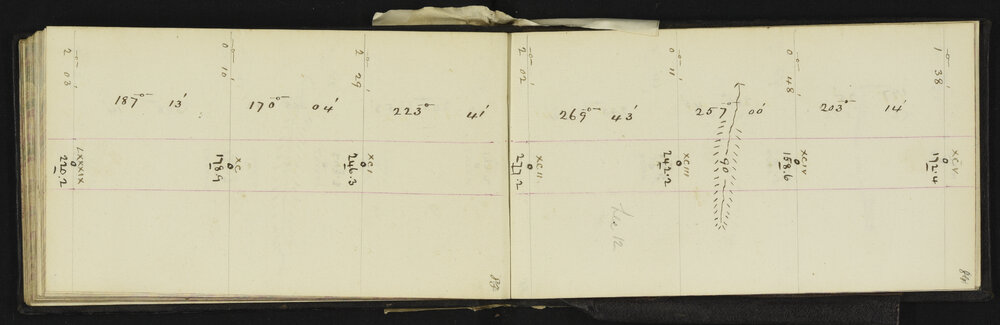 2° 03'
187° 13'
LXXXIX
220.2
0° 10'
170° 04'
XC
178.9
2° 29'
223° 41'
XCI
246.3
2° 02'
269° 43'
XCII
277.2
0° 11'
257° 00'
XCIII
242.2
90
0° 48'
203° 14'
XCIV
158.6
1° 38'
XCV
172.4